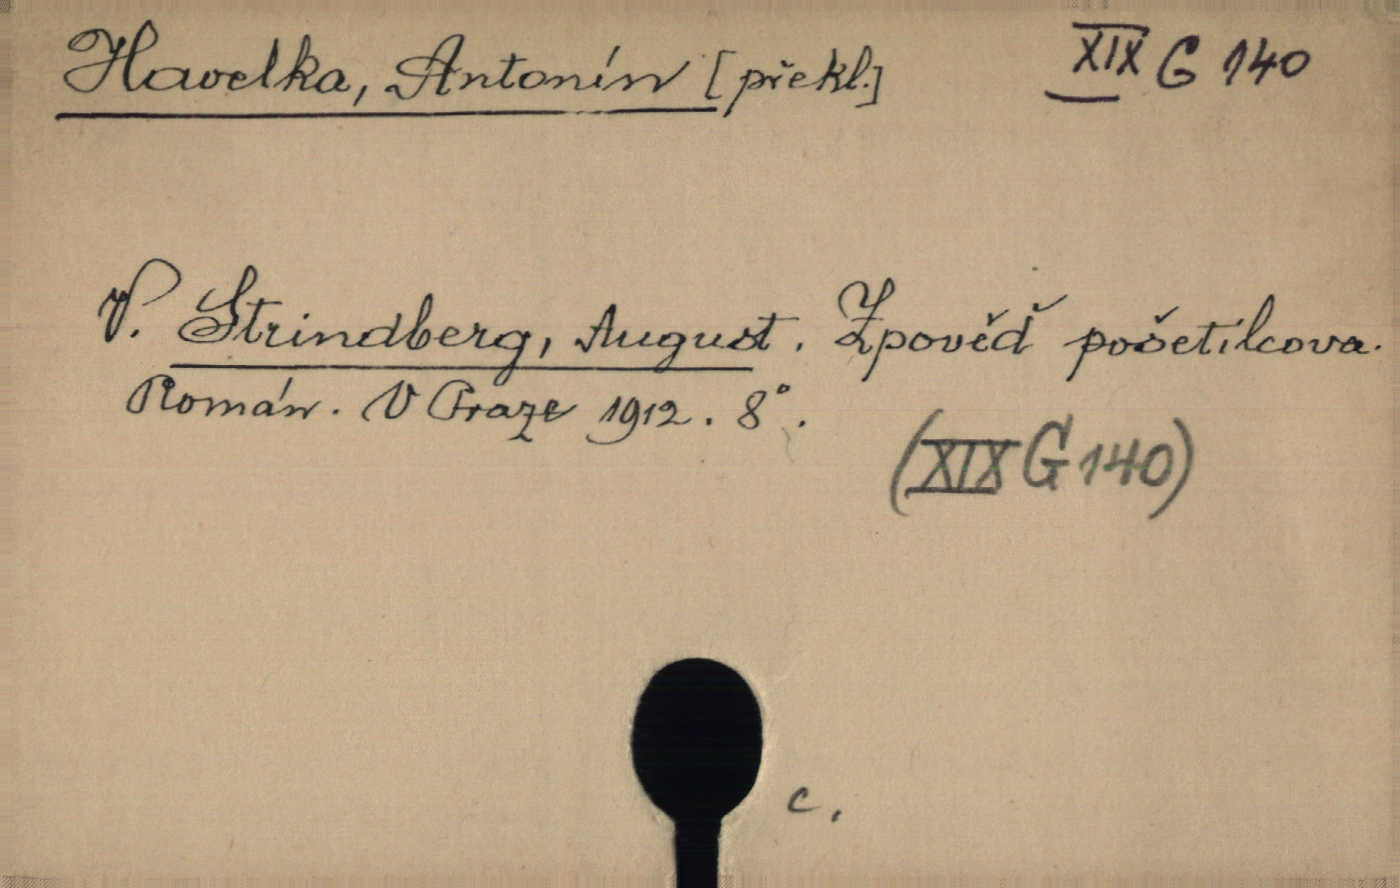 Havelka, Antonín [překl.] XIX G 140
V. Strindberg, August. Zpověď pošetilcova.
Román. V Praze 1912. 8°.
(XIX G 140)
c.